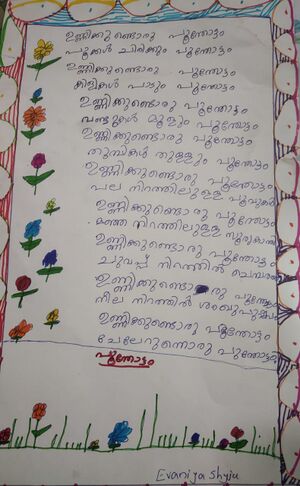 ഉണ്ണിക്കുണ്ടൊരു പൂന്തോട്ടം
പൂക്കൾ ചിരിക്കും പൂന്തോട്ടം
ഉണ്ണിക്കുണ്ടൊരു പൂന്തോട്ടം
കിളികൾ പാടും പൂന്തോട്ടം
ഉണ്ണിക്കുണ്ടൊരു പൂന്തോട്ടം
വണ്ടുകൾ മൂളും പൂന്തോട്ടം
ഉണ്ണിക്കുണ്ടൊരു പൂന്തോട്ടം
തുമ്പികൾ തുള്ളും പൂന്തോട്ടം
ഉണ്ണിക്കുണ്ടൊരു പൂന്തോട്ടം
പല നിറത്തിലുള്ള പൂവുകൾ
ഉണ്ണിക്കുണ്ടൊരു പൂന്തോട്ടം
മഞ്ഞ നിറത്തിലുള്ള സൂര്യകാന്തി
ഉണ്ണിക്കുണ്ടൊരു പൂന്തോട്ടം
ചുവപ്പ് നിറത്തിൽ
ഉണ്ണിക്കുണ്ടൊരു പൂന്തോട്ടം
നീല നിറത്തിൽ ശംഖുപുഷ്പം
ഉണ്ണിക്കുണ്ടൊരു പൂന്തോട്ടം
ചേലേറുന്നൊരു പൂന്തോട്ടം
പൂന്തോട്ടം
Evaniya Shyju